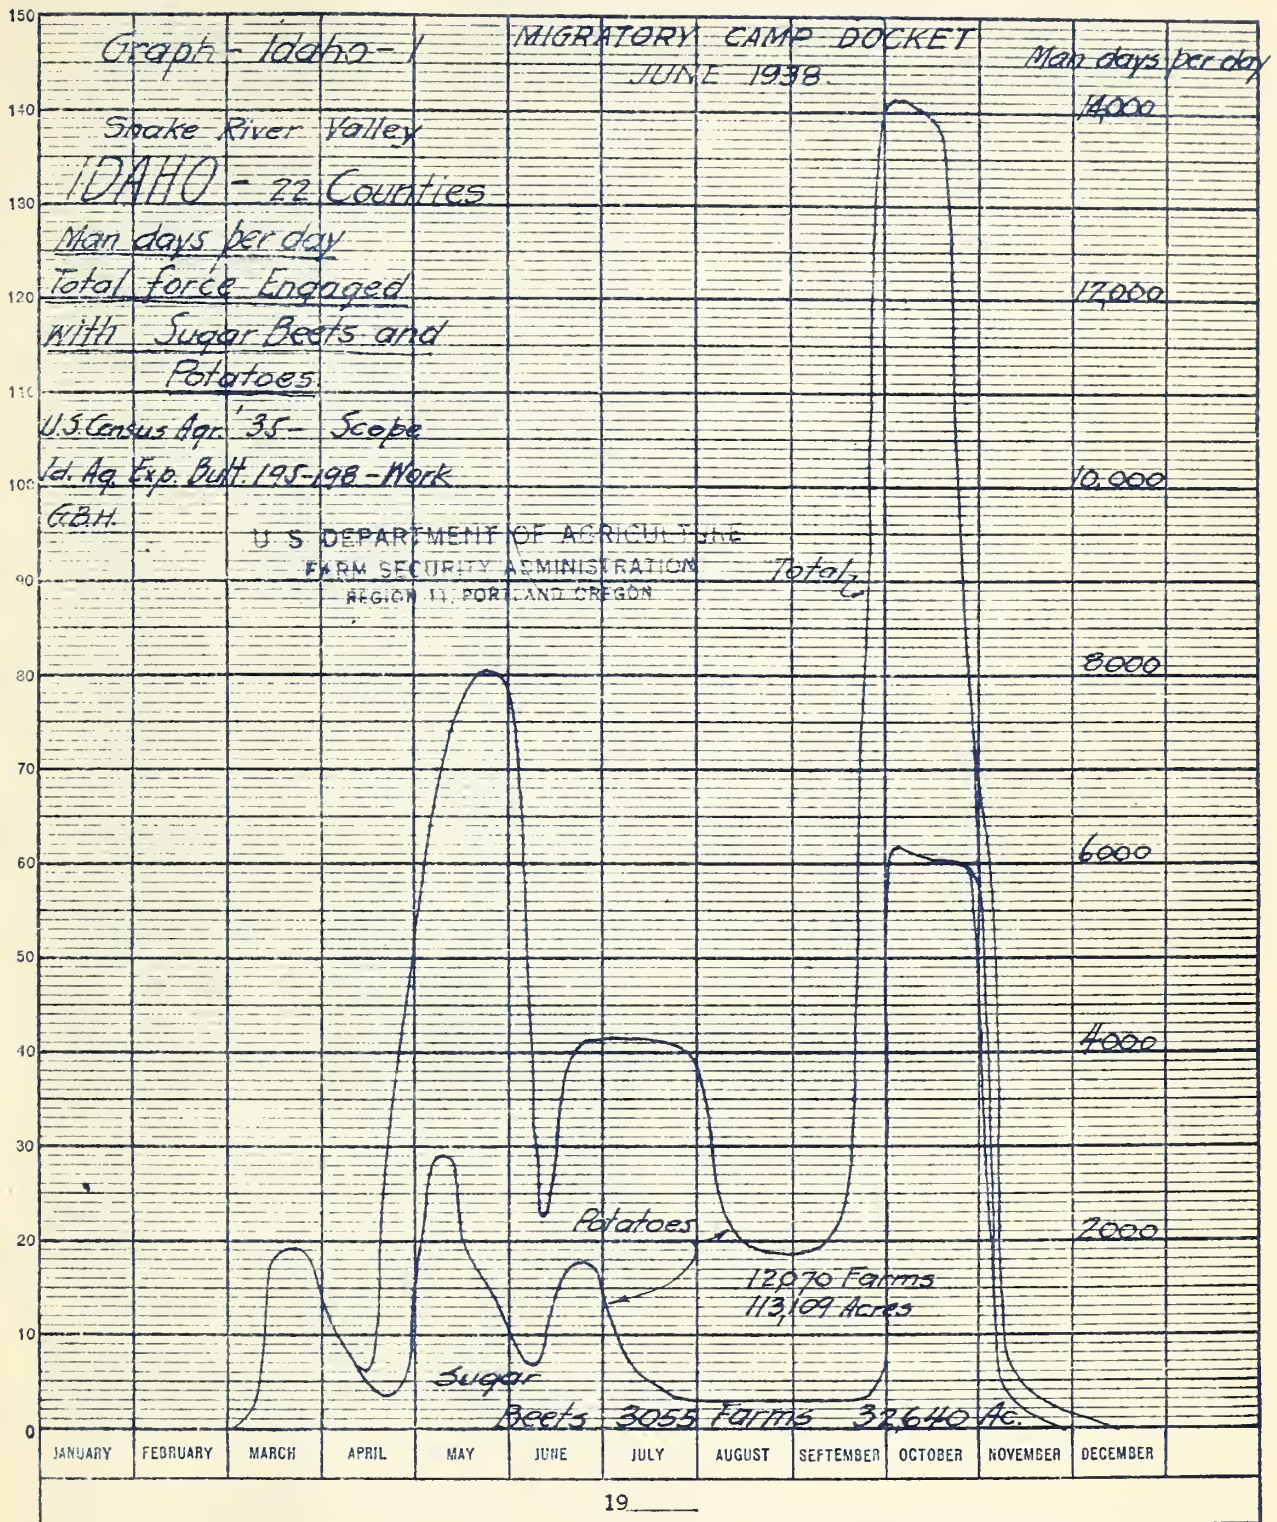 Graph - Idaho - 1
MIGRATORY CAMP DOCKET
JUNE 1938
Man days per day
Snake River Valley
IDAHO - 22 Counties
Man days per day
Total force Engaged
with Sugar Beets and
Potatoes
U.S. Census Agr. '35 - Scope
Id. Ag. Exp. Bult. 195-198 - Work
G.B.H.
U S DEPARTMENT OF AGRICULTURE
FARM SECURITY ADMINISTRATION
REGION 11, PORTLAND OREGON
Total
150
140
130
120
110
100
90
80
70
60
50
40
30
20
10
0
14,000
12,000
10,000
8000
6000
4000
2000
Potatoes
12,070 Farms
113,109 Acres
Sugar
Beets 3055 Farms 32,640 Ac.
JANUARY FEBRUARY MARCH APRIL MAY JUNE JULY AUGUST SEPTEMBER OCTOBER NOVEMBER DECEMBER
19